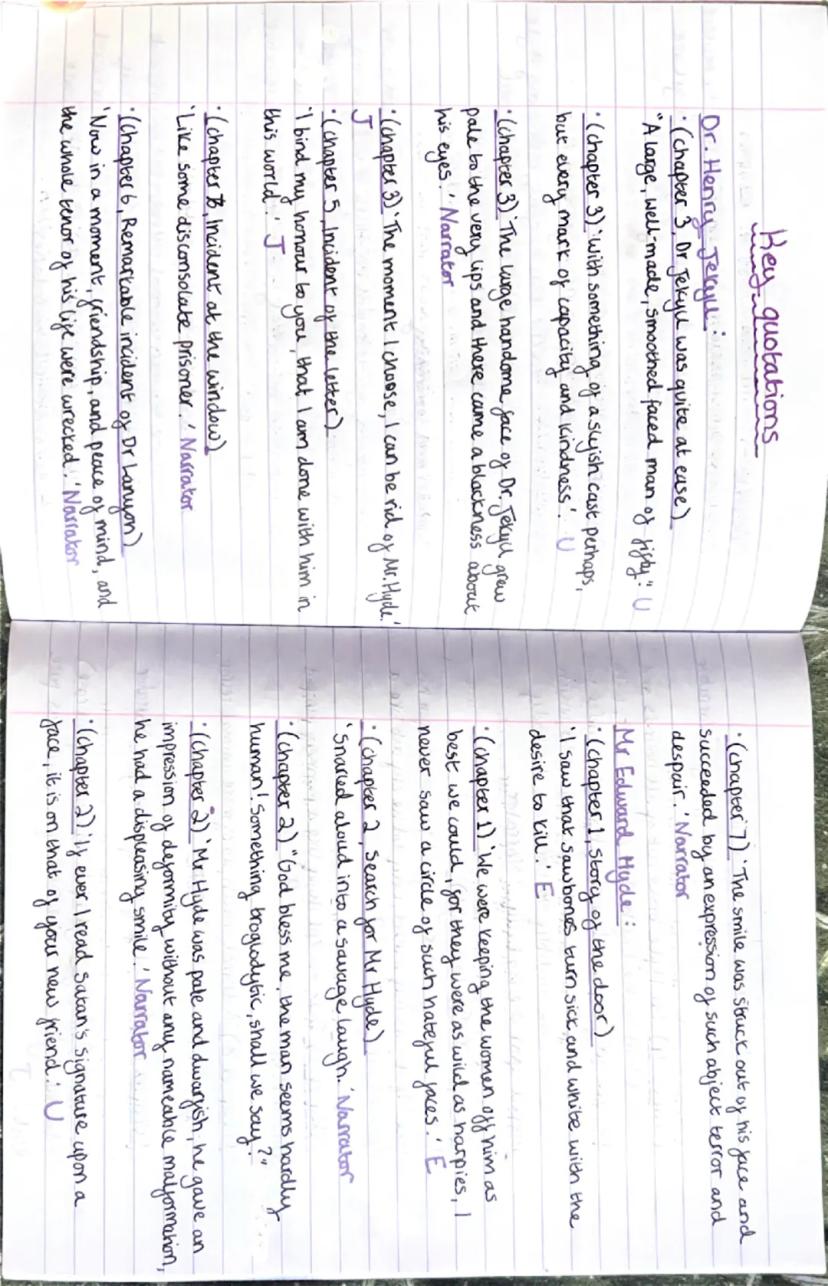 Key quotations
Dr. Henry Jekyll:
·(chapter 3, Dr Jekyll was quite at ease)
"A large, well-made, smoothed faced man of fifty." U
·(chapter 3) 'with something of a slyish cast perhaps,
but every mark of capacity and kindness'. U
·(chapter 3) 'The large handome face of Dr. Jekyll grew
pale to the very lips and there came a blackness about
his eyes.' Narrator
·(chapter 3) 'The moment I choose, I can be rid of Mr. Hyde.'
J
·(chapter 5, Incident of the letter)
'I bind my honour to you, that I am done with him in
this world.' J
·(chapter 7, Incident at the window)
'Like some disconsolate prisoner.' Narrator
·(chapter 6, Remarkable incident of Dr Lanyon)
'Now in a moment, friendship, and peace of mind, and
the whole tenor of his life were wrecked.' Narrator
·(chapter 7) 'The smile was stuck out of his face and
succeeded by an expression of such abject terror and
despair.' Narrator
Mr Edward Hyde:
·(chapter 1, Story of the door)
'I saw that sawbones turn sick and white with the
desire to kill.' E
·(chapter 1) 'We were keeping the women off him as
best we could, for they were as wild as harpies, I
never saw a circle of such hateful faces.' E
·(chapter 2, Search for Mr Hyde)
'Snarled aloud into a savage laugh.' Narrator
·(chapter 2) "God bless me, the man seems hardly
human! Something troglodytic, shall we say?"
·(chapter 2) 'Mr Hyde was pale and dwarfish, he gave an
impression of deformity without any nameable malformation,
he had a displeasing smile.' Narrator
·(chapter 2) 'If ever I read Satan's signature upon a
face, it is on that of your new friend.' U